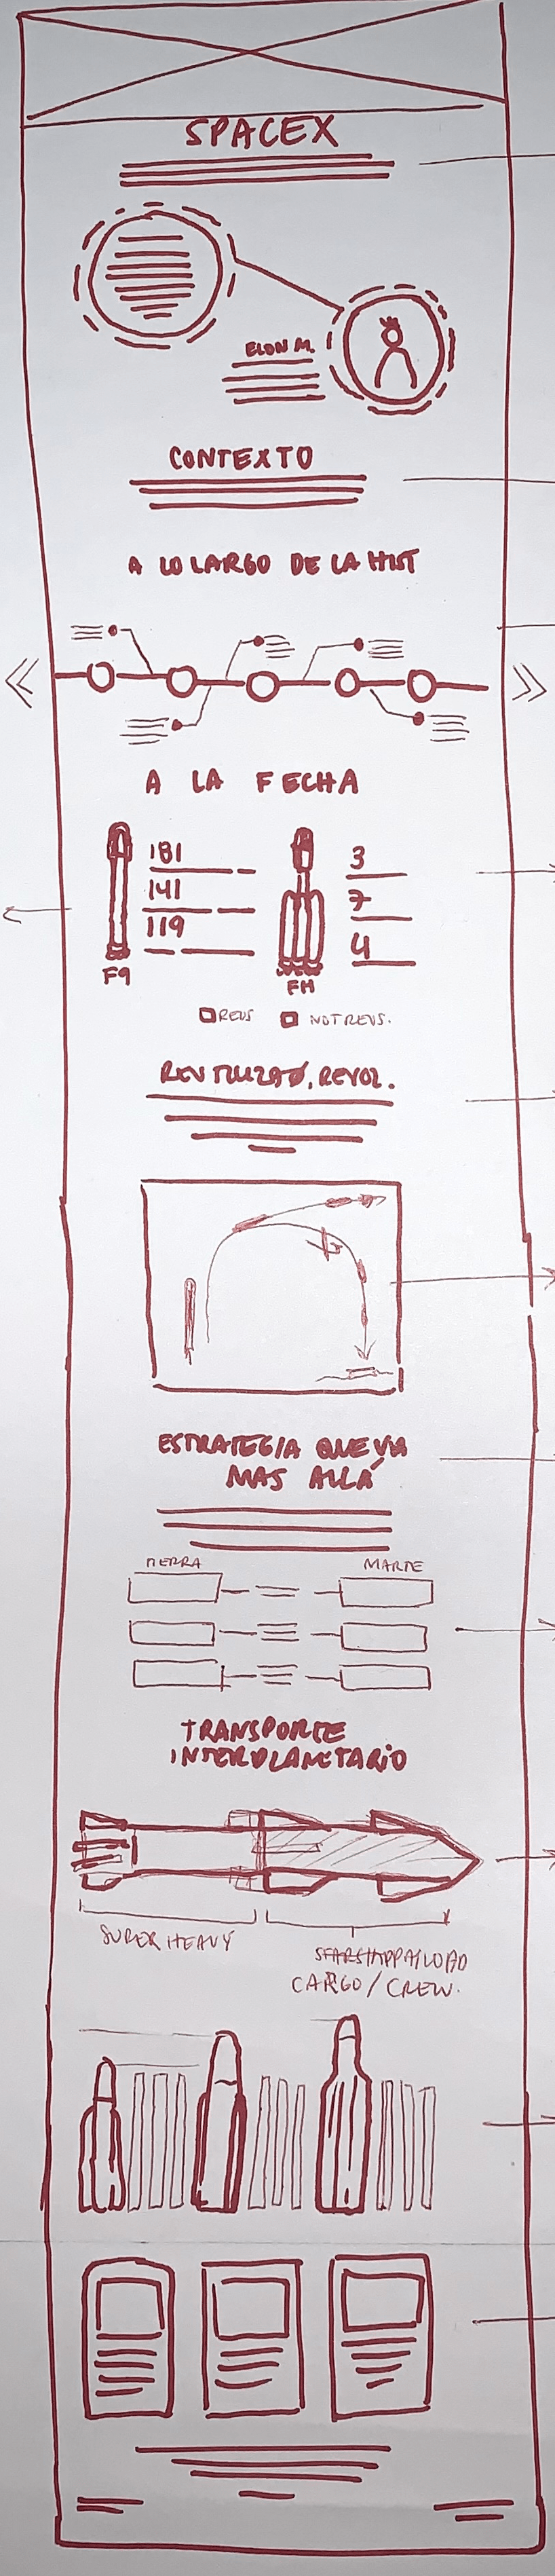 SPACEX
ELON M.
CONTEXTO
A LO LARGO DE LA HIST
A LA FECHA
181
141
119
F9
3
7
4
FH
REUS
NOT REUS.
REUTILIZAD, REVOL.
ESTRATEGIA QUE VA
MAS ALLÁ
TIERRA
MARTE
TRANSPORTE
INTERPLANETARIO
SUPER HEAVY
STARSHIP PAYLOAD
CARGO / CREW.